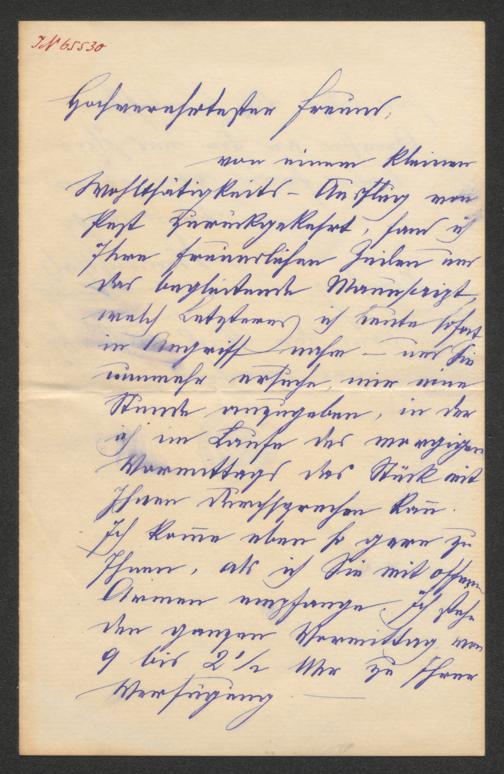 IN 65530
Hochverehrtester Freund,
von einem kleinen
Wohlthätigkeits-Ausflug von
Pest zurückgekehrt, fand ich
Ihre freundlichen Zeilen und
das begleitende Manuscript,
welch Letzteres ich heute sofort
in Angriff nahm – und Sie
nunmehr ersuche, mir eine
Stunde anzugeben, in der
ich im Laufe des morgigen
Vormittags das Stück mit
Ihnen durchsprechen kann.
Ich komme eben so gern zu
Ihnen, als ich Sie mit offenen
Armen empfange. Ich stehe
den ganzen Vormittag von
9 bis 2 1/2 Uhr zu Ihrer
Verfügung.